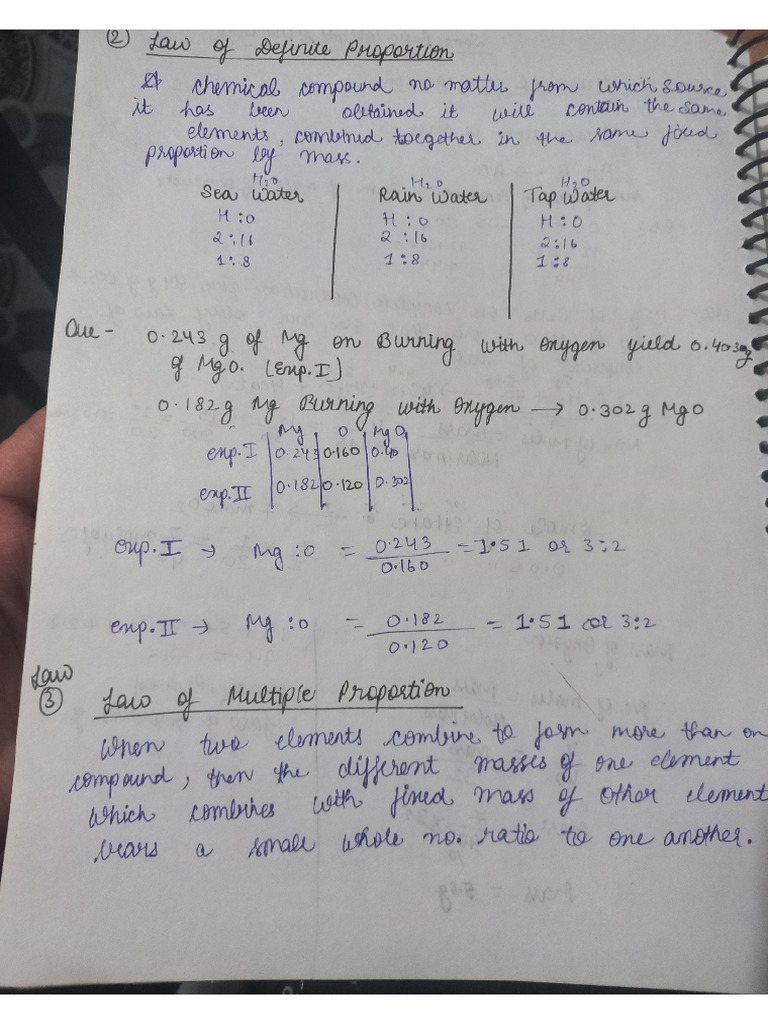 (2) Law of Definite Proportion
A chemical compound no matter from which source
it has been obtained it will contain the same
elements, combined toegether in the same fixed
proportion by mass.
H2O H2O H2O
Sea Water Rain Water Tap Water
H : O H : O H : O
2 : 16 2 : 16 2 : 16
1 : 8 1 : 8 1 : 8
Que - 0.243 g of Mg on Burning with oxygen yield 0.403g
of MgO. [Exp. I]
0.182 g Mg Burning with Oxygen → 0.302 g MgO
Mg O MgO
exp. I 0.243 0.160 0.40
exp. II 0.182 0.120 0.302
exp. I → Mg : O = 0.243 / 0.160 = 1.51 or 3:2
exp. II → Mg : O = 0.182 / 0.120 = 1.51 or 3:2
Law
(3) Law of Multiple Proportion
When two elements combine to form more than on
compound, then the different masses of one element
which combines with fixed mass of other element
bears a small whole no. ratio to one another.